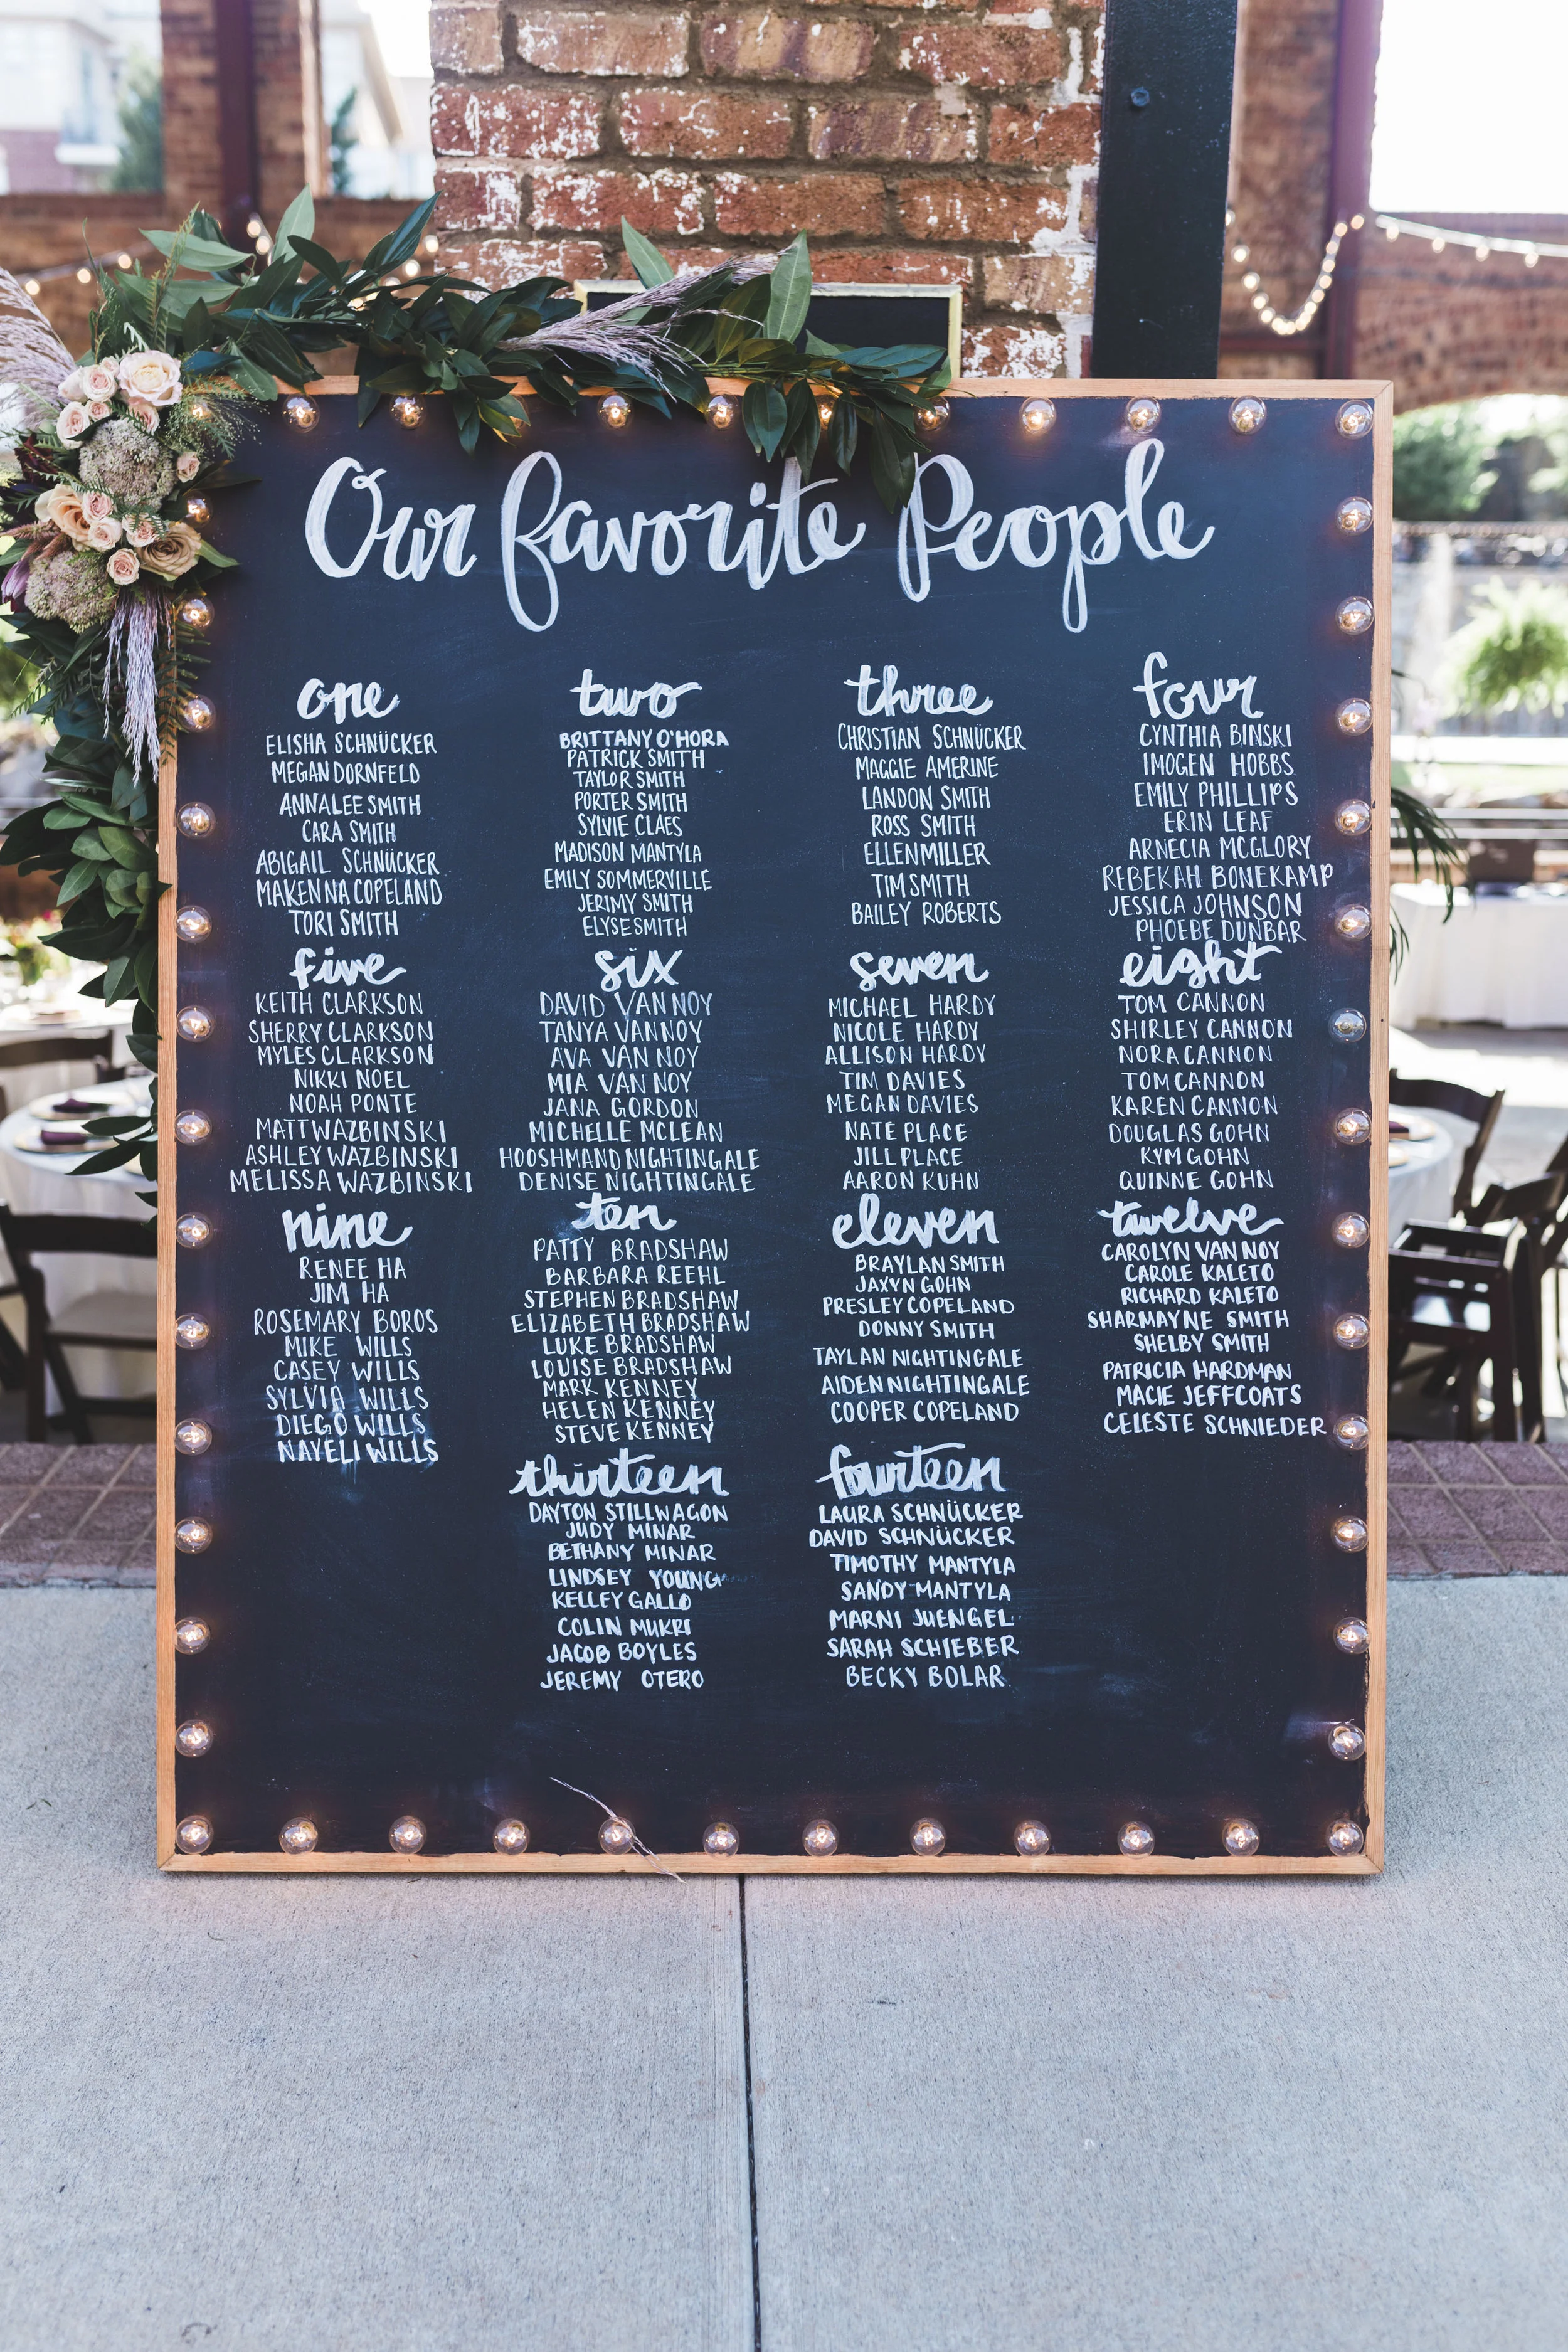 Our favorite People
one
ELISHA SCHNÜCKER
MEGAN DORNFELD
ANNALEE SMITH
CARA SMITH
ABIGAIL SCHNÜCKER
MAKENNA COPELAND
TORI SMITH
two
BRITTANY O'HORA
PATRICK SMITH
TAYLOR SMITH
PORTER SMITH
SYLVIE CLAES
MADISON MANTYLA
EMILY SOMMERVILLE
JERIMY SMITH
ELYSE SMITH
three
CHRISTIAN SCHNÜCKER
MAGGIE AMERINE
LANDON SMITH
ROSS SMITH
ELLEN MILLER
TIM SMITH
BAILEY ROBERTS
four
CYNTHIA BINSKI
IMOGEN HOBBS
EMILY PHILLIPS
ERIN LEAF
ARNECIA MCGLORY
REBEKAH BONEKAMP
JESSICA JOHNSON
PHOEBE DUNBAR
five
KEITH CLARKSON
SHERRY CLARKSON
MYLES CLARKSON
NIKKI NOEL
NOAH PONTE
MATT WAZBINSKI
ASHLEY WAZBINSKI
MELISSA WAZBINSKI
six
DAVID VAN NOY
TANYA VAN NOY
AVA VAN NOY
MIA VAN NOY
JANA GORDON
MICHELLE MCLEAN
HOOSHMAND NIGHTINGALE
DENISE NIGHTINGALE
seven
MICHAEL HARDY
NICOLE HARDY
ALLISON HARDY
TIM DAVIES
MEGAN DAVIES
NATE PLACE
JILL PLACE
AARON KUHN
eight
TOM CANNON
SHIRLEY CANNON
NORA CANNON
TOM CANNON
KAREN CANNON
DOUGLAS GOHN
KYM GOHN
QUINNE GOHN
nine
RENEE HA
JIM HA
ROSEMARY BOROS
MIKE WILLS
CASEY WILLS
SYLVIA WILLS
DIEGO WILLS
NAYELI WILLS
ten
PATTY BRADSHAW
BARBARA REEHL
STEPHEN BRADSHAW
ELIZABETH BRADSHAW
LUKE BRADSHAW
LOUISE BRADSHAW
MARK KENNEY
HELEN KENNEY
STEVE KENNEY
eleven
BRAYLAN SMITH
JAXYN GOHN
PRESLEY COPELAND
DONNY SMITH
TAYLAN NIGHTINGALE
AIDEN NIGHTINGALE
COOPER COPELAND
twelve
CAROLYN VAN NOY
CAROLE KALETO
RICHARD KALETO
SHARMAYNE SMITH
SHELBY SMITH
PATRICIA HARDMAN
MACIE JEFFCOATS
CELESTE SCHNIEDER
thirteen
DAYTON STILLWAGON
JUDY MINAR
BETHANY MINAR
LINDSEY YOUNG
KELLEY GALLO
COLIN MUKRI
JACOB BOYLES
JEREMY OTERO
fourteen
LAURA SCHNÜCKER
DAVID SCHNÜCKER
TIMOTHY MANTYLA
SANDY MANTYLA
MARNI JUENGEL
SARAH SCHIEBER
BECKY BOLAR